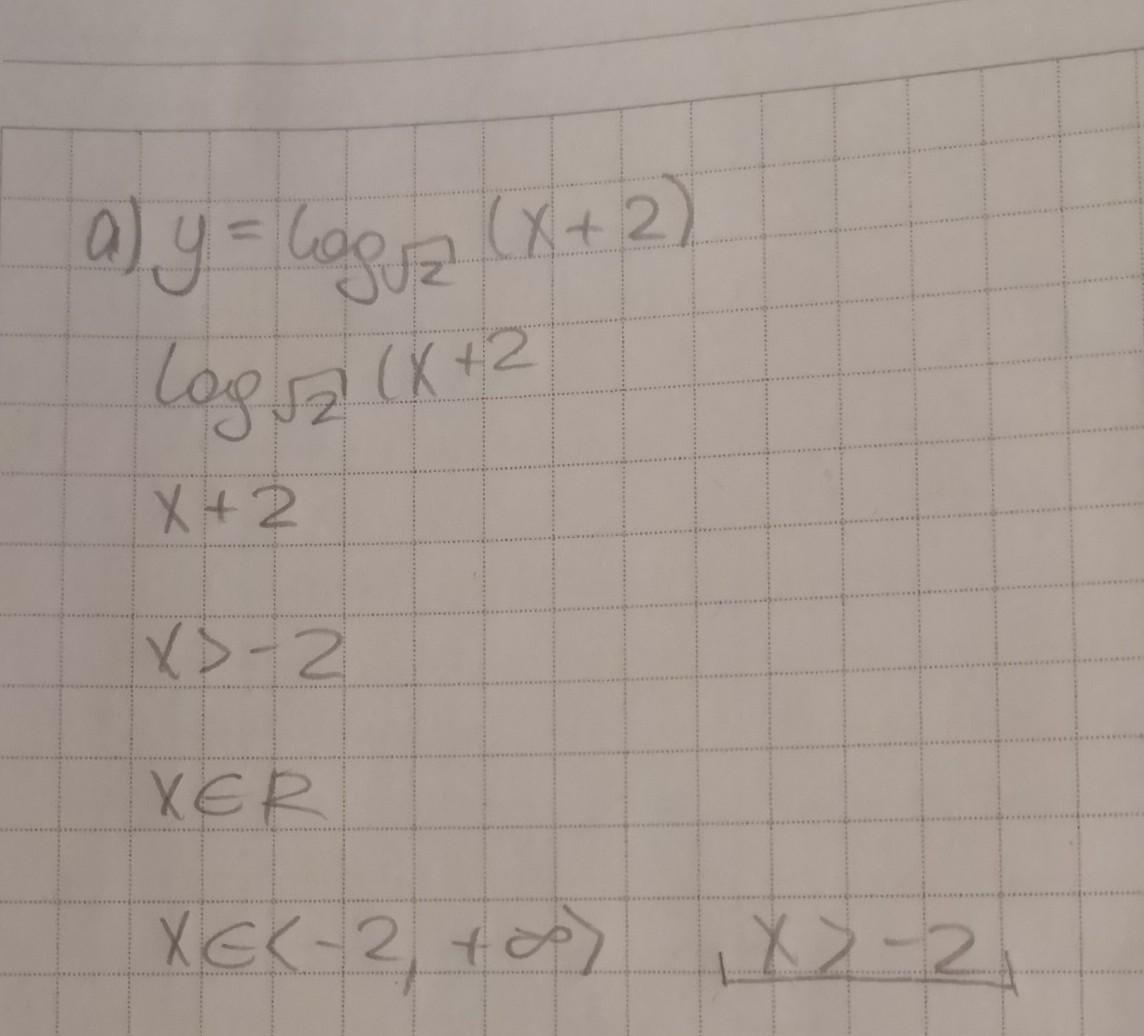 a) y = log√2 (x+2)
log√2 (x+2
x+2
x>-2
x∈R
x∈<-2, +∞> x>-2